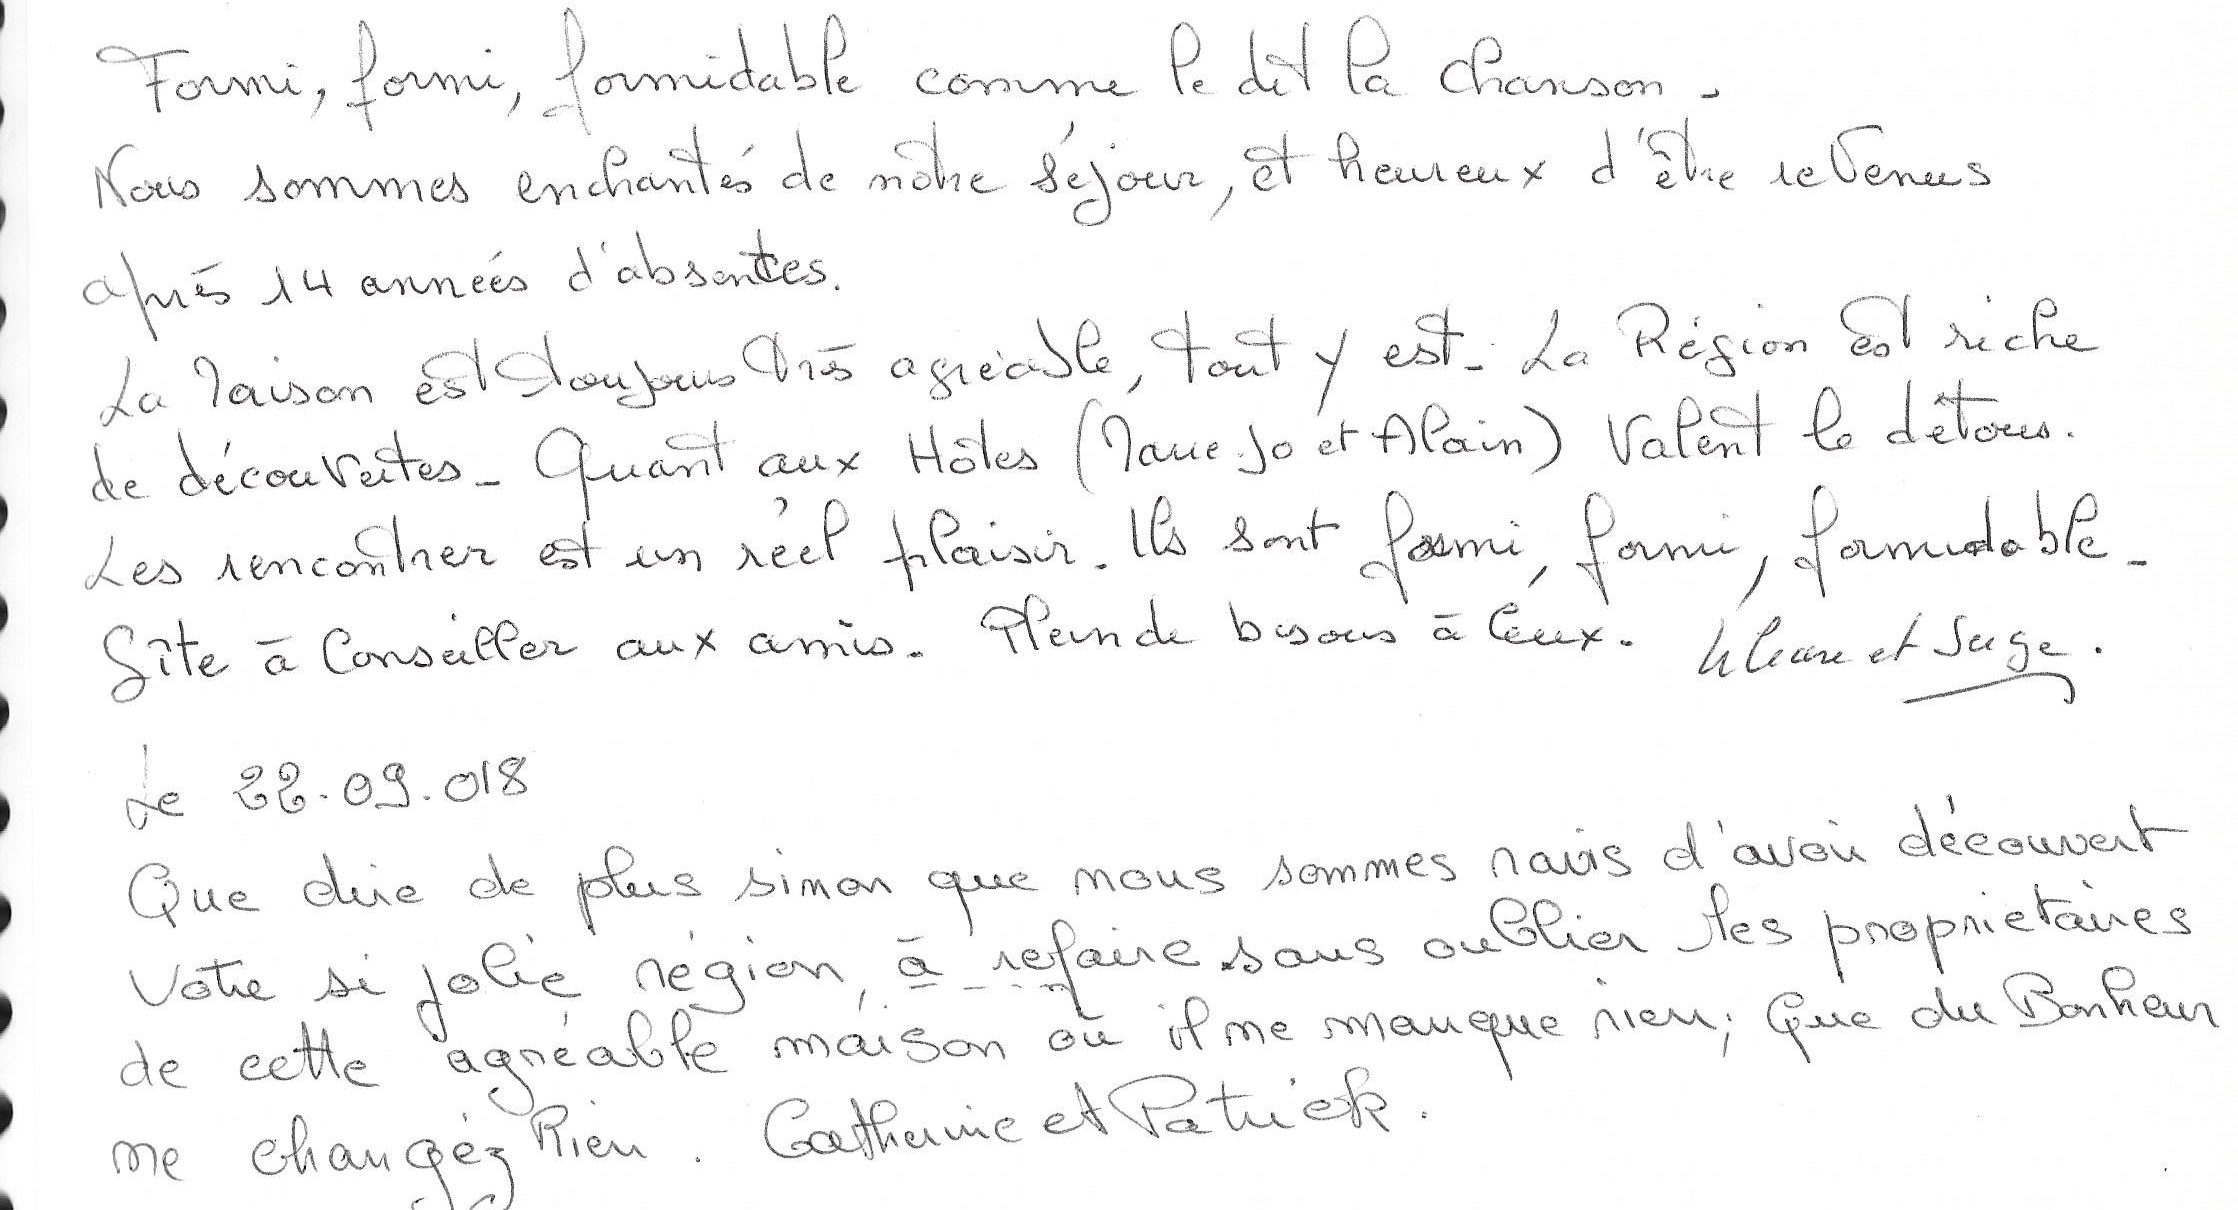 Formi, formi, formidable comme le dit la chanson.
Nous sommes enchantés de notre séjour, et heureux d'être revenus
après 14 années d'absences.
La Maison est toujours très agréable, tout y est. La Région est riche
de découvertes - Quant aux Hôtes (Marie-Jo et Alain) Valent le détour.
Les rencontrer est un réel plaisir. Ils sont formi, formi, formidable -
Gîte à Conseiller aux amis. Plein de bisous à Eux. Liliane et Serge.
Le 22.09.018
Que dire de plus sinon que nous sommes ravis d'avoir découvert
Votre si jolie région, à refaire sans oublier les propriétaires
de cette agréable maison où il ne manque rien; Que du Bonheur
ne changéz Rien. Catherine et Patrick.